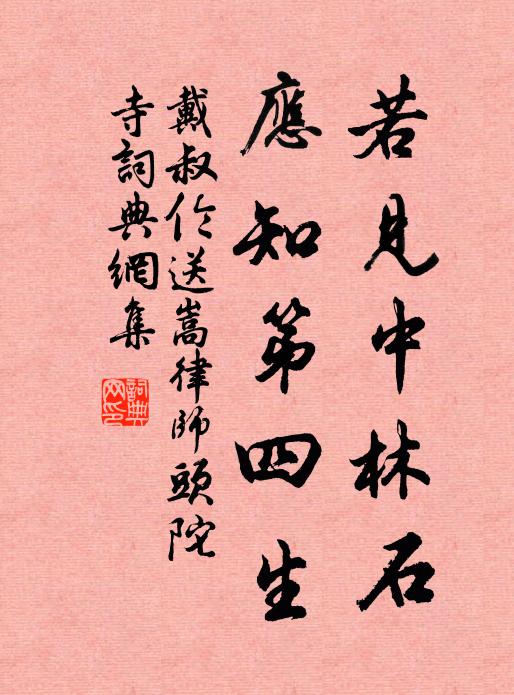 若見中林石
應知第四生
戴叔伦送嵩律師頭陀
寺詞典網集
詞典
网印